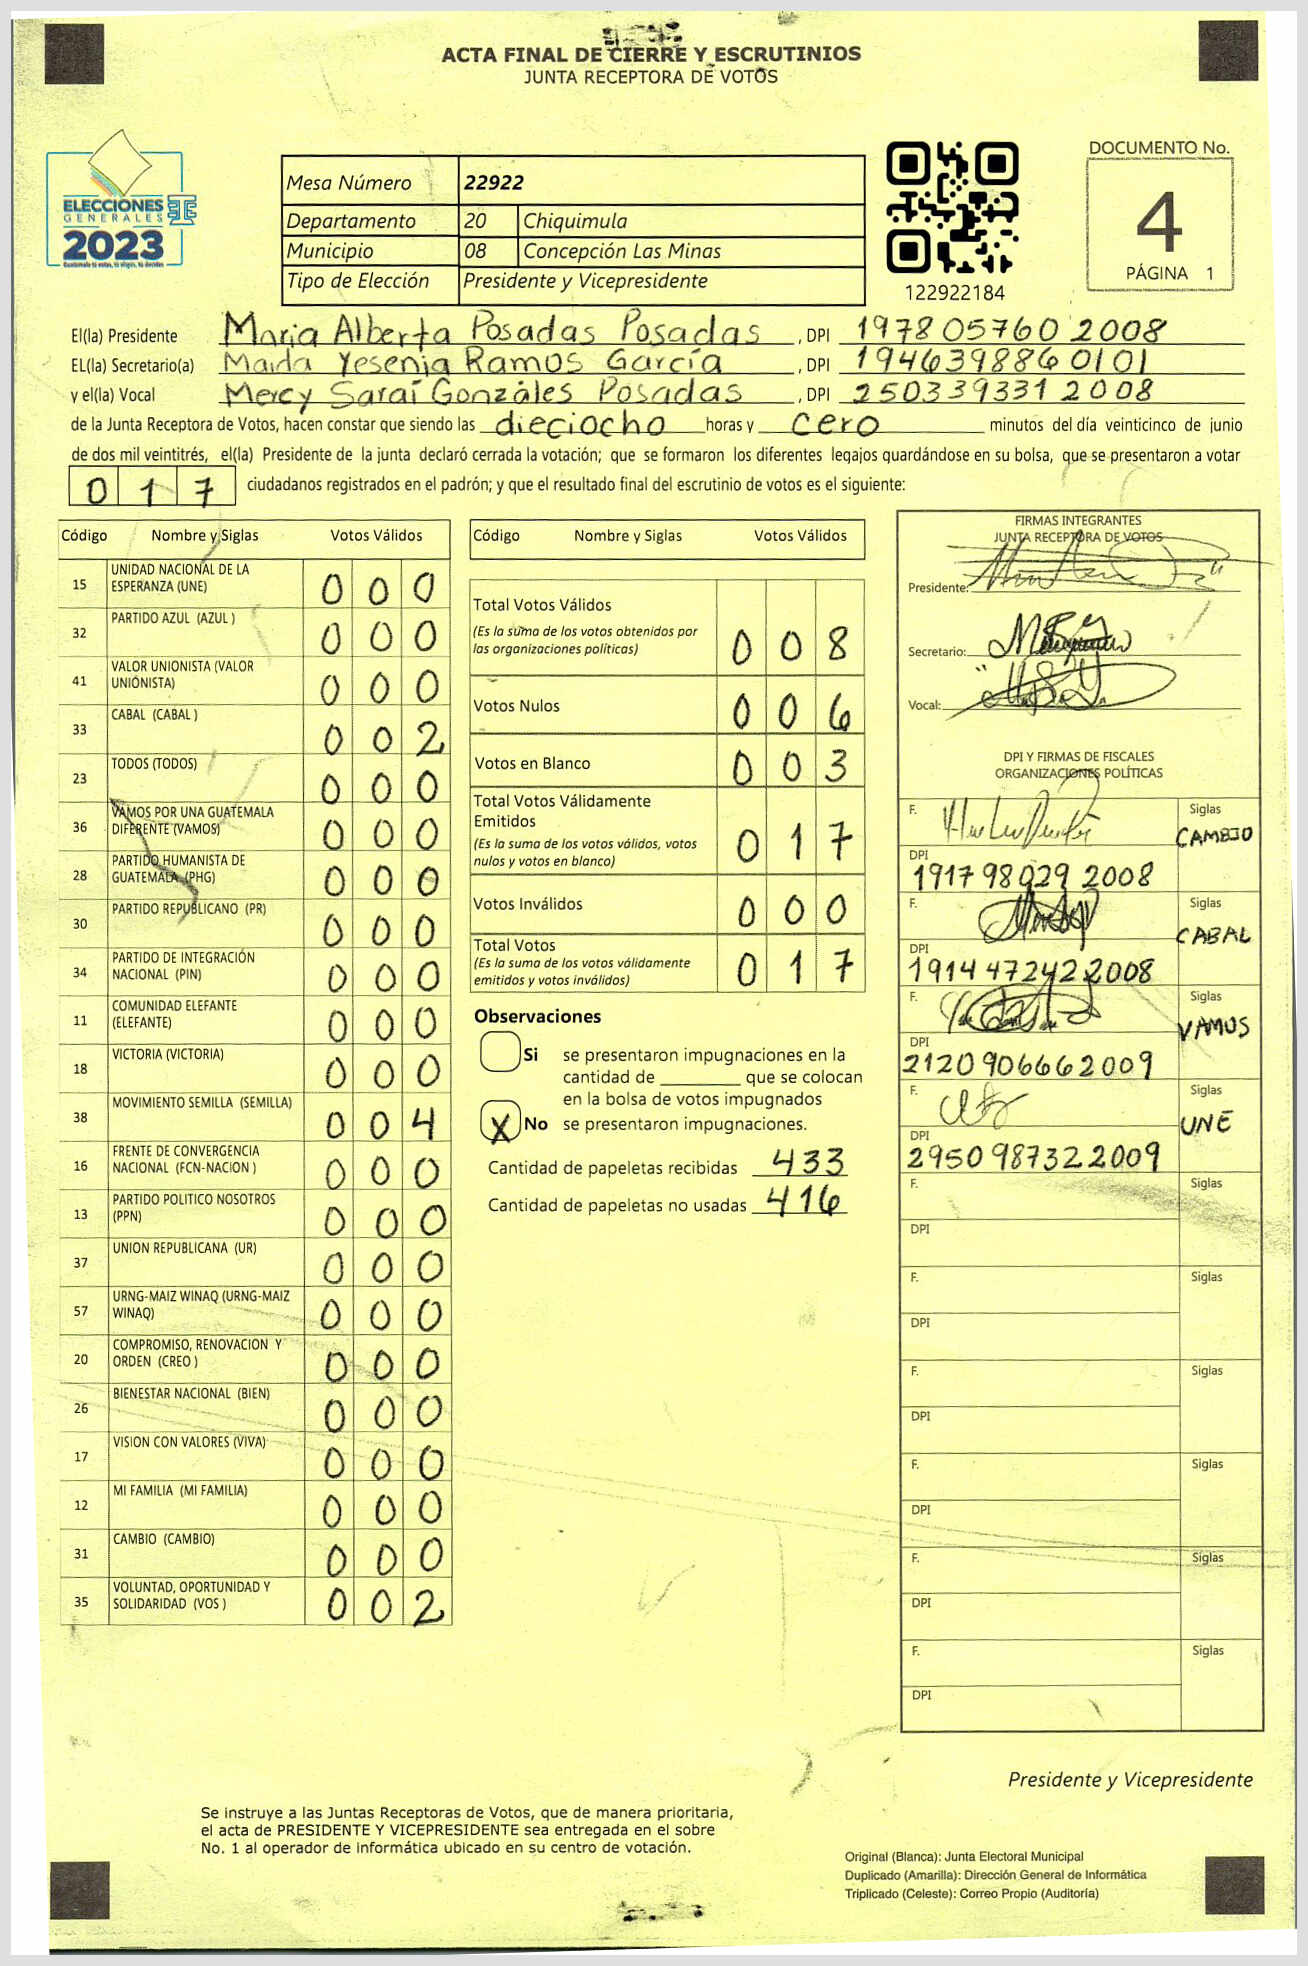 ACTA FINAL DE CIERRE Y ESCRUTINIOS
JUNTA RECEPTORA DE VOTOS
ELECCIONES
GENERALES
2023
Mesa Número 22922
Departamento 20 Chiquimula
Municipio 08 Concepción Las Minas
Tipo de Elección Presidente y Vicepresidente
122922184
DOCUMENTO No.
4
PÁGINA 1
El(la) Presidente Maria Alberta Posadas Posadas, DPI 1978 05760 2008
EL(la) Secretario(a) Maida Yesenia Ramos García, DPI 194639886 0101
y el(la) Vocal Mercy Saraí Gonzáles Posadas, DPI 250339331 2008
de la Junta Receptora de Votos, hacen constar que siendo las dieciocho horas y cero minutos del día veinticinco de junio
de dos mil veintitrés, el(la) Presidente de la junta declaró cerrada la votación; que se formaron los diferentes legajos guardándose en su bolsa, que se presentaron a votar
017 ciudadanos registrados en el padrón; y que el resultado final del escrutinio de votos es el siguiente:
Código Nombre y Siglas Votos Válidos
15 UNIDAD NACIONAL DE LA ESPERANZA (UNE) 0 0 0
32 PARTIDO AZUL (AZUL ) 0 0 0
41 VALOR UNIONISTA (VALOR UNIONISTA) 0 0 0
33 CABAL (CABAL ) 0 0 2
23 TODOS (TODOS) 0 0 0
36 VAMOS POR UNA GUATEMALA DIFERENTE (VAMOS) 0 0 0
28 PARTIDO HUMANISTA DE GUATEMALA (PHG) 0 0 0
30 PARTIDO REPUBLICANO (PR) 0 0 0
34 PARTIDO DE INTEGRACIÓN NACIONAL (PIN) 0 0 0
11 COMUNIDAD ELEFANTE (ELEFANTE) 0 0 0
18 VICTORIA (VICTORIA) 0 0 0
38 MOVIMIENTO SEMILLA (SEMILLA) 0 0 4
16 FRENTE DE CONVERGENCIA NACIONAL (FCN-NACION ) 0 0 0
13 PARTIDO POLITICO NOSOTROS (PPN) 0 0 0
37 UNION REPUBLICANA (UR) 0 0 0
57 URNG-MAIZ WINAQ (URNG-MAIZ WINAQ) 0 0 0
20 COMPROMISO, RENOVACION Y ORDEN (CREO ) 0 0 0
26 BIENESTAR NACIONAL (BIEN) 0 0 0
17 VISION CON VALORES (VIVA) 0 0 0
12 MI FAMILIA (MI FAMILIA) 0 0 0
31 CAMBIO (CAMBIO) 0 0 0
35 VOLUNTAD, OPORTUNIDAD Y SOLIDARIDAD (VOS ) 0 0 2
Código Nombre y Siglas Votos Válidos
Total Votos Válidos
(Es la suma de los votos obtenidos por
las organizaciones políticas) 0 0 8
Votos Nulos 0 0 6
Votos en Blanco 0 0 3
Total Votos Válidamente
Emitidos
(Es la suma de los votos válidos, votos
nulos y votos en blanco) 0 1 7
Votos Inválidos 0 0 0
Total Votos
(Es la suma de los votos válidamente
emitidos y votos inválidos) 0 1 7
Observaciones
Si se presentaron impugnaciones en la
cantidad de ________ que se colocan
en la bolsa de votos impugnados
X No se presentaron impugnaciones.
Cantidad de papeletas recibidas 433
Cantidad de papeletas no usadas 416
FIRMAS INTEGRANTES
JUNTA RECEPTORA DE VOTOS
Presidente:
Secretario:
Vocal:
DPI Y FIRMAS DE FISCALES
ORGANIZACIONES POLÍTICAS
F. Siglas
CAMBIO
DPI
1917 98029 2008
F. Siglas
CABAL
DPI
1914 47242 2008
F. Siglas
VAMOS
DPI
2120 90666 2009
F. Siglas
UNE
DPI
2950 98732 2009
F. Siglas
DPI
F. Siglas
DPI
F. Siglas
DPI
F. Siglas
DPI
F. Siglas
DPI
F. Siglas
DPI
Presidente y Vicepresidente
Se instruye a las Juntas Receptoras de Votos, que de manera prioritaria,
el acta de PRESIDENTE Y VICEPRESIDENTE sea entregada en el sobre
No. 1 al operador de informática ubicado en su centro de votación.
Original (Blanca): Junta Electoral Municipal
Duplicado (Amarilla): Dirección General de Informática
Triplicado (Celeste): Correo Propio (Auditoría)